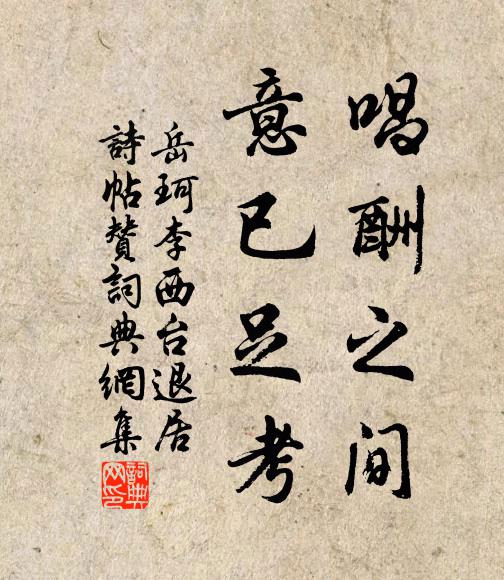 唱酬之间
意已足考
岳珂李西台退居
詩帖贊詞典網集
詞典網印